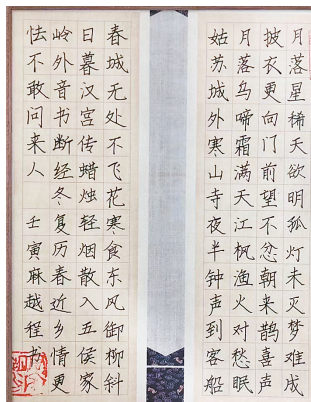 月落星稀天欲明孤灯未灭梦难成
披衣更向门前望不忿朝来鹊喜声
月落乌啼霜满天江枫渔火对愁眠
姑苏城外寒山寺夜半钟声到客船
春城无处不飞花寒食东风御柳斜
日暮汉宫传蜡烛轻烟散入五侯家
岭外音书断经冬复历春近乡情更
怯不敢问来人 壬寅麻越程书